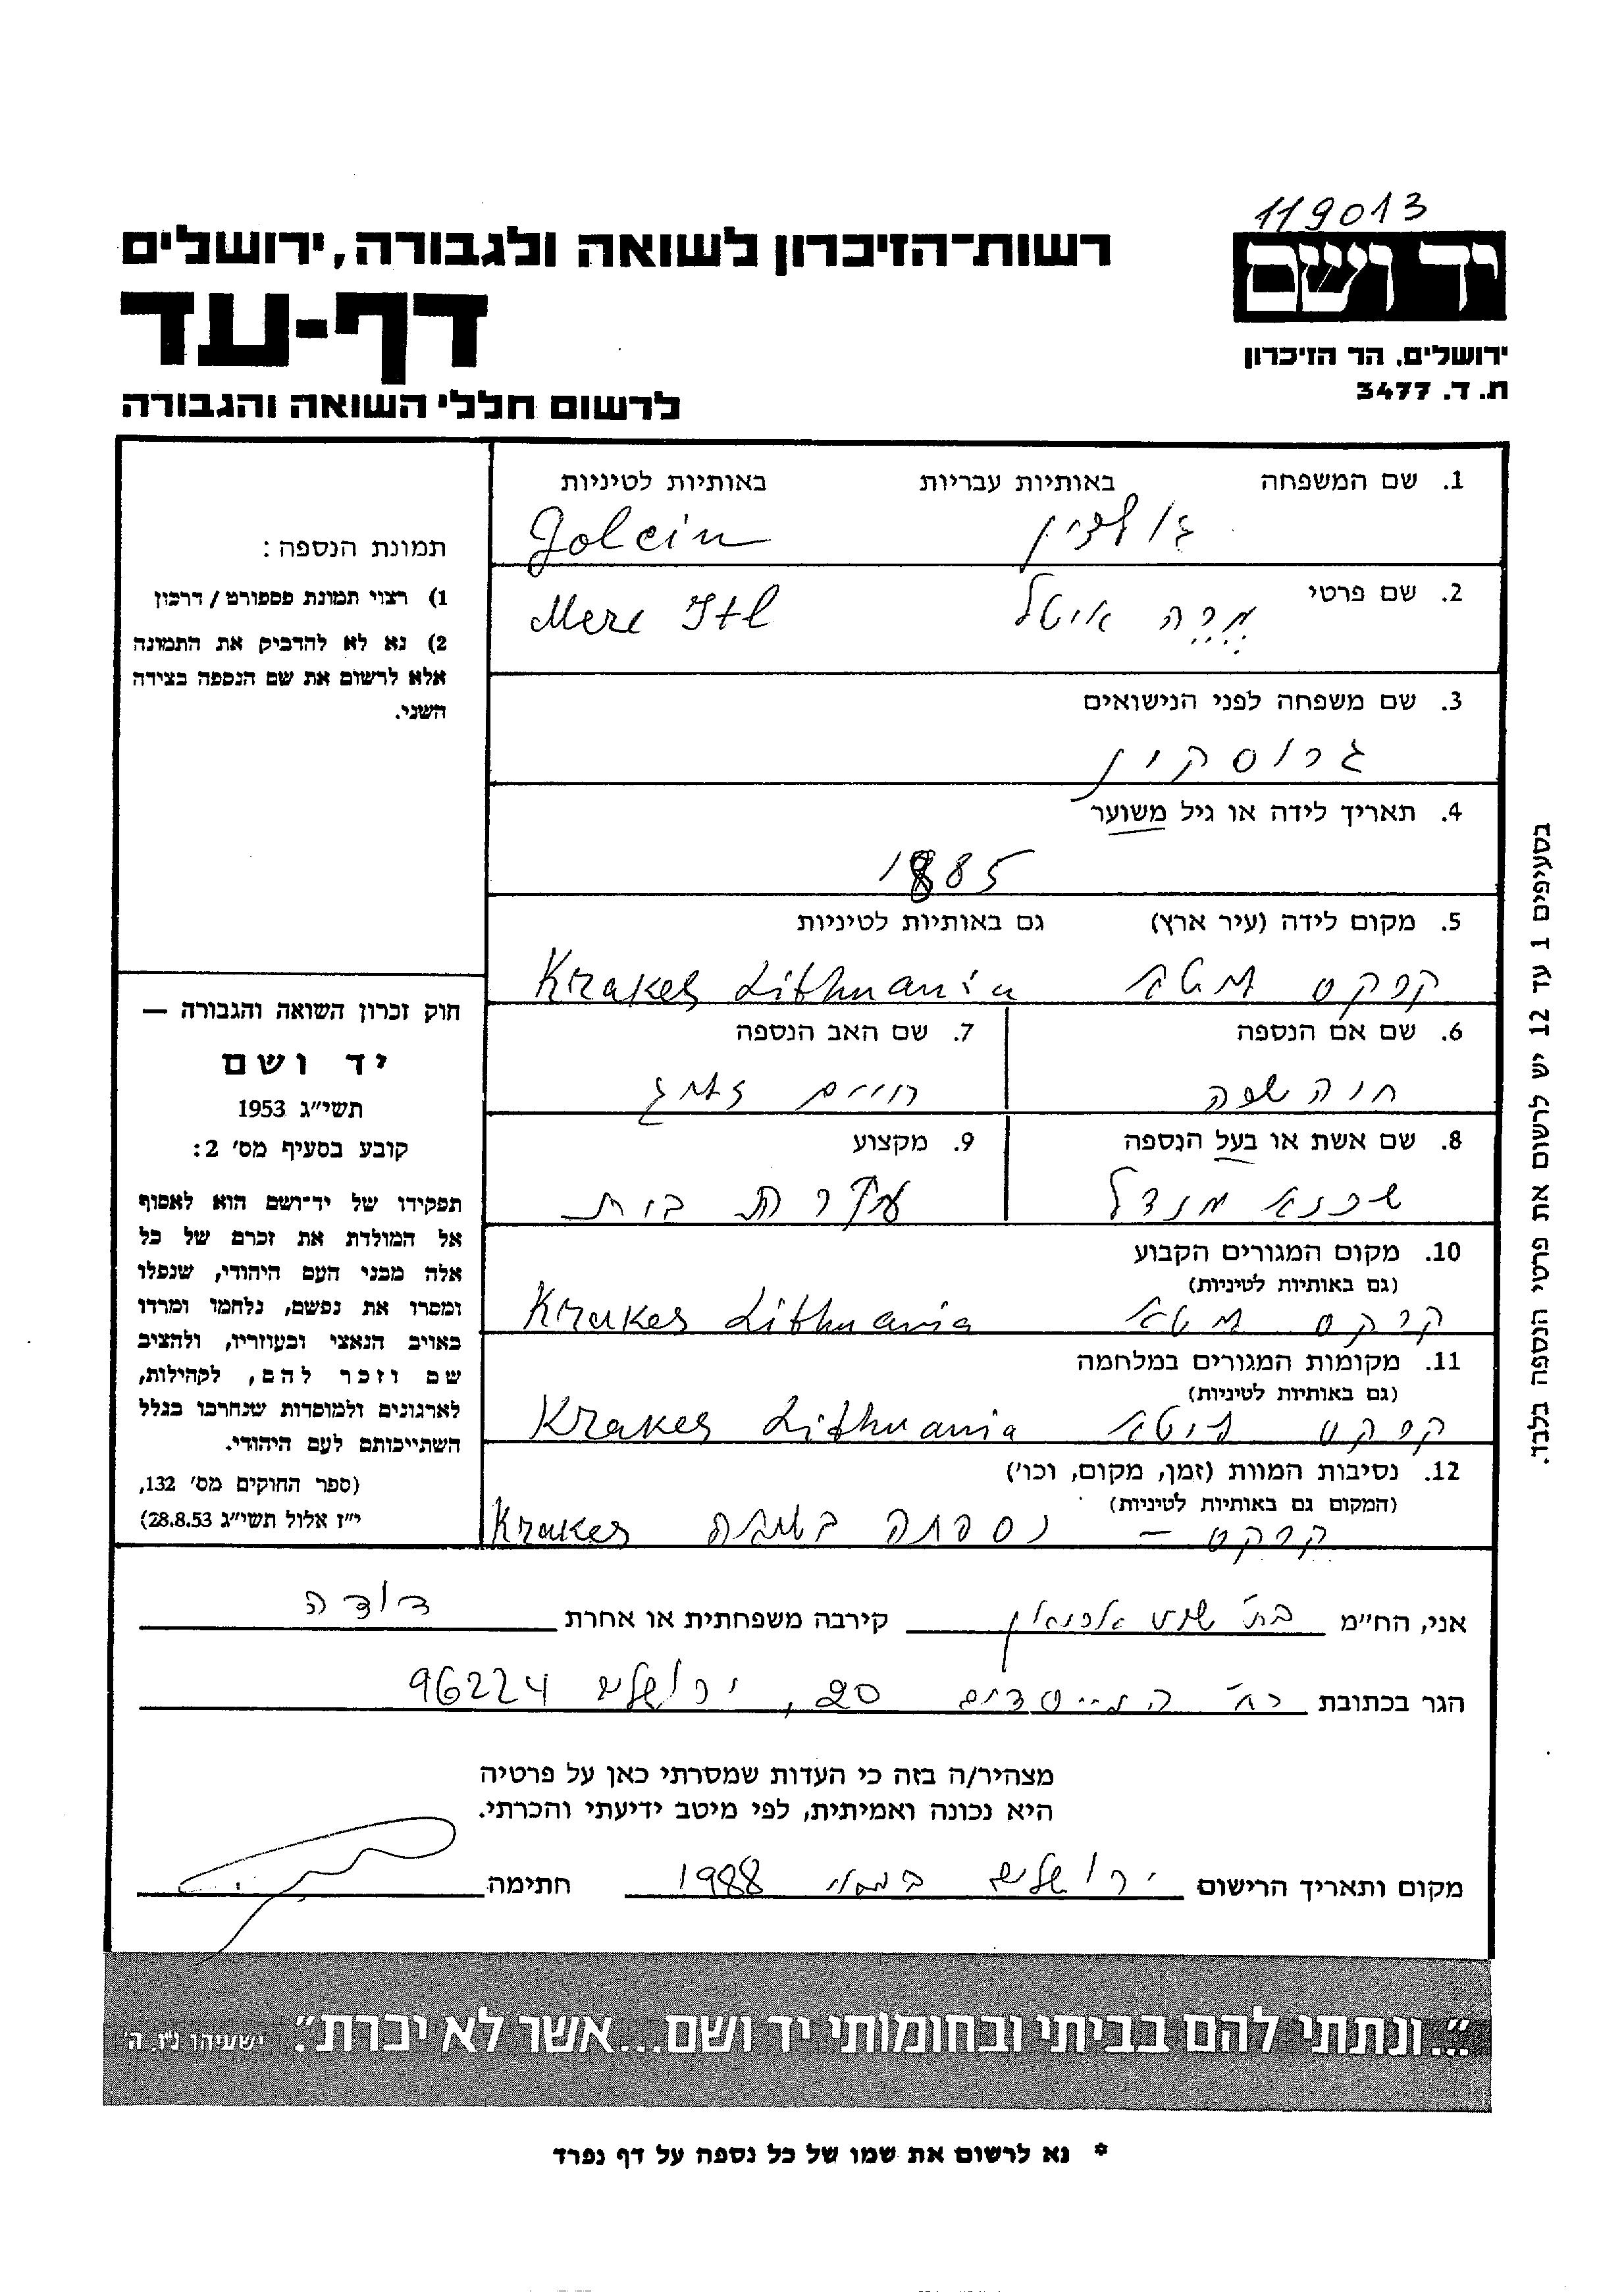 119013
יד ושם
ירושלים, הר הזיכרון
ת. ד. 3477
רשות־הזיכרון לשואה ולגבורה, ירושלים
דף-עד
לרשום חללי השואה והגבורה
תמונת הנספה:
1) רצוי תמונת פספורט / דרכון
2) נא לא להדביק את התמונה
אלא לרשום את שם הנספה בצידה
השני.
חוק זכרון השואה והגבורה —
יד ושם
תשי״ג 1953
קובע בסעיף מס׳ 2:
תפקידו של יד־ושם הוא לאסוף
אל המולדת את זכרם של כל
אלה מבני העם היהודי, שנפלו
ומסרו את נפשם, נלחמו ומרדו
באויב הנאצי ובעוזריו, ולהציב
שם וזכר להם, לקהילות,
לארגונים ולמוסדות שנחרבו בגלל
השתייכותם לעם היהודי.
(ספר החוקים מס׳ 132,
י״ז אלול תשי״ג 28.8.53)
1. שם המשפחה באותיות עבריות באותיות לטיניות
גולצין Golcin
2. שם פרטי
מרה איטל Mere Itl
3. שם משפחה לפני הנישואים
גרוסקין
4. תאריך לידה או גיל משוער
1885
5. מקום לידה (עיר ארץ) גם באותיות לטיניות
קרקס ליטא Krakes Lithuania
6. שם אם הנספה 7. שם האב הנספה
חוה שפה חיים זליג
8. שם אשת או בעל הנספה 9. מקצוע
שכנא מנדל עקרת בית
10. מקום המגורים הקבוע
(גם באותיות לטיניות)
קרקס ליטא Krakes Lithuania
11. מקומות המגורים במלחמה
(גם באותיות לטיניות)
קרקס ליטא Krakes Lithuania
12. נסיבות המוות (זמן, מקום, וכו׳)
(המקום גם באותיות לטיניות)
קרקס — נספתה בשואה Krakes
אני, הח״מ בת שבע קירבה משפחתית או אחרת דודה
הגר בכתובת רח׳ המייסדים 20, ירושלים 96224
מצהיר/ה בזה כי העדות שמסרתי כאן על פרטיה
היא נכונה ואמיתית, לפי מיטב ידיעתי והכרתי.
מקום ותאריך הרישום ירושלים במאי 1988 חתימה
״...ונתתי להם בביתי ובחומותי יד ושם...אשר לא יכרת״. ישעיהו נ״ו. ה׳
* נא לרשום את שמו של כל נספה על דף נפרד
בסעיפים 1 עד 12 יש לרשום את פרטי הנספה בלבד.